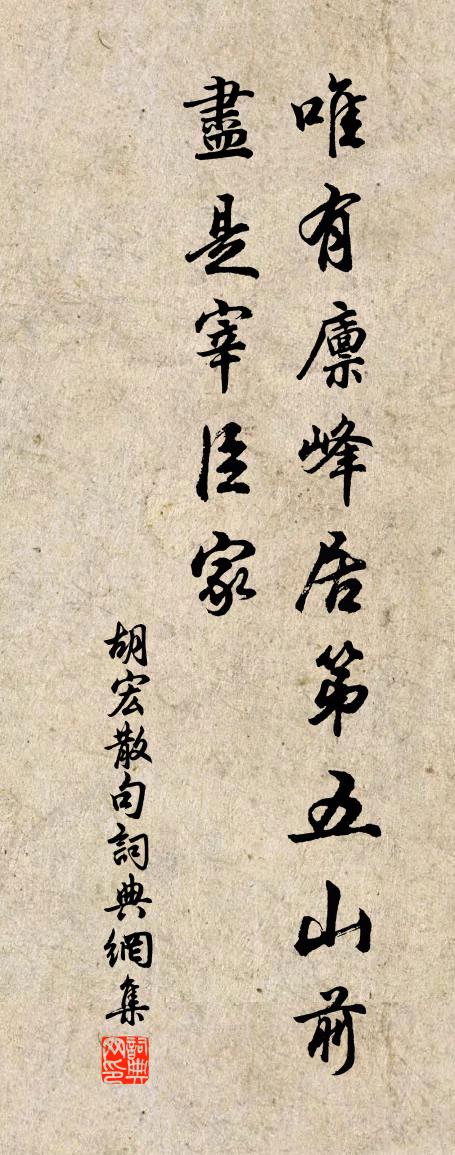 唯有廩峰居第五山前
盡是宰臣家
胡宏散句詞典網集
詞典网印